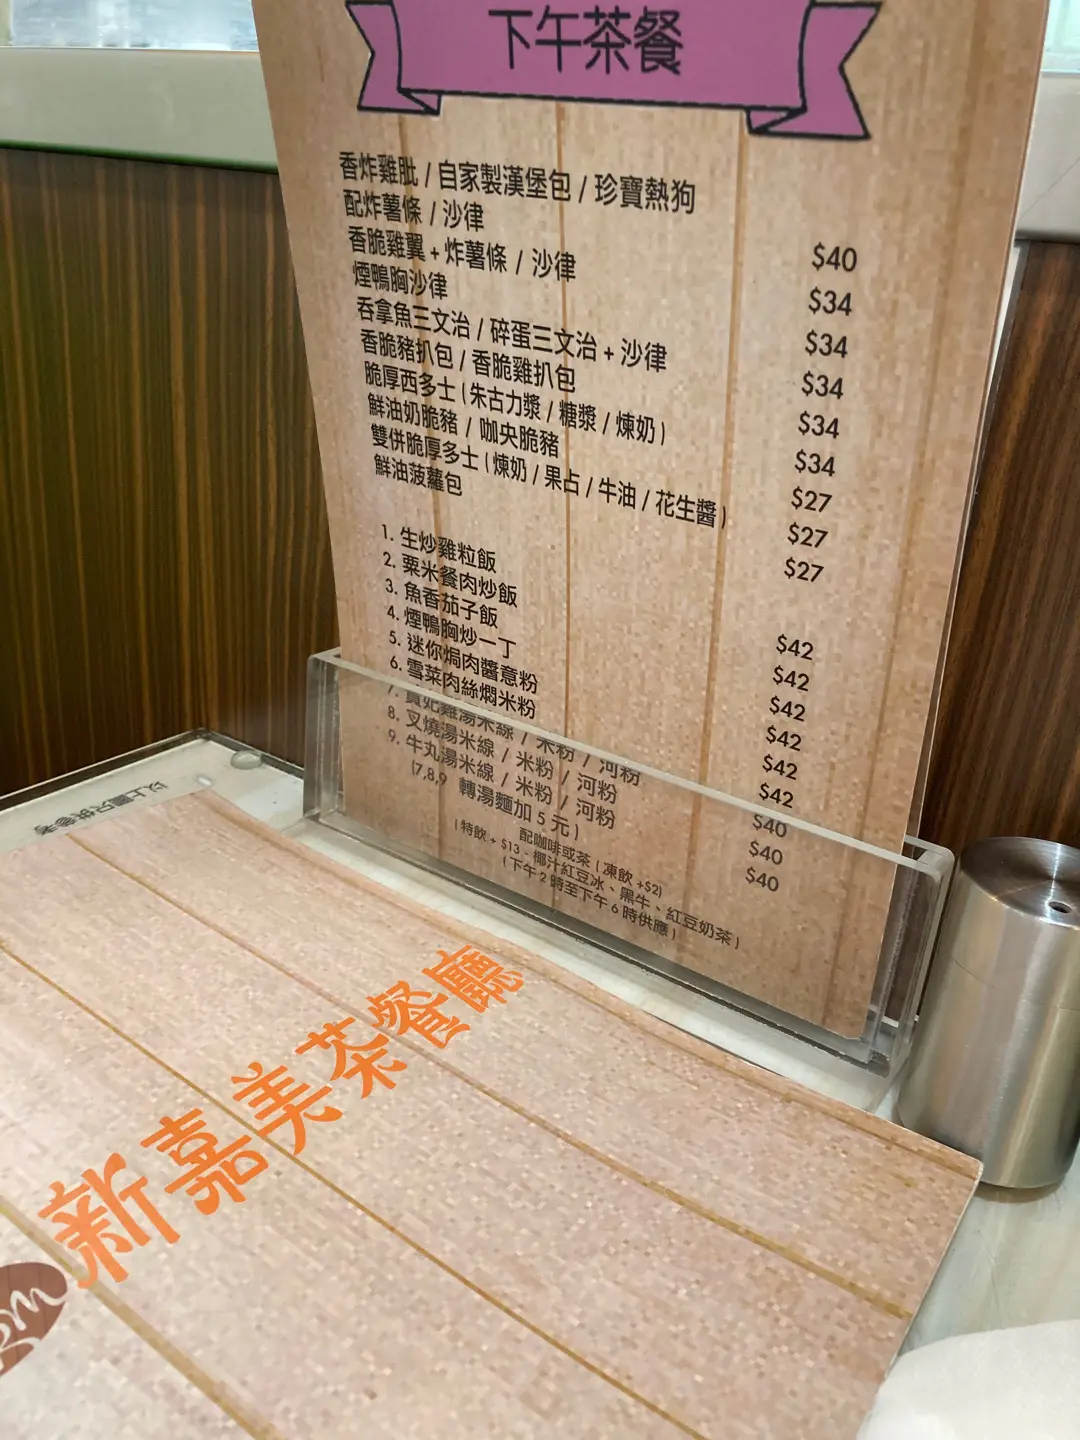 下午茶餐
香炸雞肶 / 自家製漢堡包 / 珍寶熱狗
配炸薯條 / 沙律 $40
香脆雞翼 + 炸薯條 / 沙律 $34
煙鴨胸沙律 $34
吞拿魚三文治 / 碎蛋三文治 + 沙律 $34
香脆豬扒包 / 香脆雞扒包 $34
脆厚西多士 ( 朱古力漿 / 糖漿 / 煉奶 ) $34
鮮油奶脆豬 / 咖央脆豬 $27
雙併脆厚多士 ( 煉奶 / 果占 / 牛油 / 花生醬 ) $27
鮮油菠蘿包 $27
1. 生炒雞粒飯 $42
2. 粟米餐肉炒飯 $42
3. 魚香茄子飯 $42
4. 煙鴨胸炒一丁 $42
5. 迷你焗肉醬意粉 $42
6. 雪菜肉絲燜米粉 $42
7. 貴妃雞湯米線 / 米粉 / 河粉 $40
8. 叉燒湯米線 / 米粉 / 河粉 $40
9. 牛丸湯米線 / 米粉 / 河粉 $40
(7,8,9 轉湯麵加 5 元 )
配咖啡或茶 ( 凍飲 +$2)
( 特飲 + $13 - 椰汁紅豆冰、黑牛、紅豆奶茶 )
( 下午 2 時至下午 6 時供應 )
以上圖片只供參考
新嘉美茶餐廳